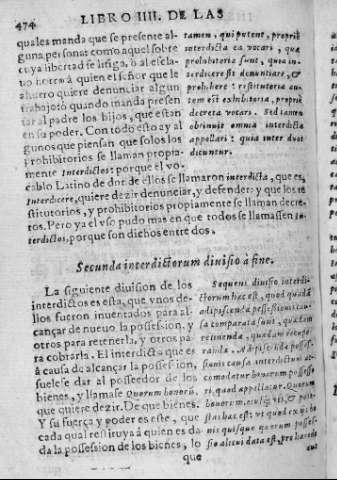 474 LIBRO IIII. DE LAS
quales manda que se presente al-
guna persona: como aquel sobre
cuya libertad se litiga, o al escla-
uo horro à quien el señor que le
ahorro quiere denunciar algun
trabajo: ò quando manda presen
tar al padre los hijos, que estan
en su poder. Con todo esto ay al
gunos que piensan que solos los
prohibitorios se llaman propia-
mente Interdictos: porque el vo-
cablo Latino de dõde ellos se llamaron interdicta, que es,
Interdicere, quiere dezir denunciar, y defender: y que los re
stitutorios, y prohibitorios propiamente se llaman decre
tos. Pero ya el vso pudo mas en que todos se llamassen in-
terdictos, porque son dichos entre dos.
tamen, qui putent, propriè
interdicta ea vocari, quæ
prohibitoria sunt, quia in-
terdicere est denuntiare, &
prohibere: restitutoria au-
tem & exhibitoria, propriè
decreta vocari. Sed tamen
obtinuit omnia interdicta
appellari: quia inter duos
dicuntur.
Secunda interdictorum diuisio à fine.
La siguiente diuision de los
interdictos es esta, que vnos de-
llos fueron inuentados para al-
cançar de nueuo la possession, y
otros para retenerla, y otros pa
ra cobrarla. El interdicto que es
à causa de alcançar la possession,
suelese dar al posseedor de los
bienes, y llamase Quorum bonorũ,
que quiere dezir. De que bienes.
Y su fuerça y poder es este, que
cada qual restituya à quien es da-
da la possession de los bienes, lo
Sequens diuisio interdi-
ctorum hæc est, quod quædã
adipiscendæ possessionis causa
comparata sunt, quædam
retinendæ, quædam recupe-
randæ. Adipiscendæ posses-
sionis causa interdictum ac-
comodatur bonorum possesso
ri, quod appellatur, Quorum
bonorum, eiusque vis, & pote-
stas hæc est: vt quod ex ijs bo-
nis quisque quorum posses-
sio alicui data est, pro hærede
que
aut